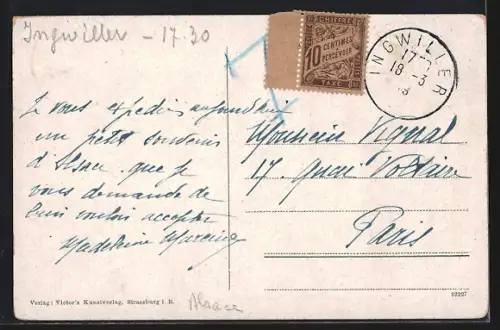 Ingwiller - 17.30
CHIFFRE
10 CENTIMES
À
PERCEVOIR
TAXE
INGWILLER
17-
18 -3
Je vous expédie aujourd'hui
un petit souvenir
d'Alsace que je
vous demande de
bien vouloir accepter
Madeleine
Monsieur Vignal
17. quai Voltaire
Paris
Verlag: Victor's Kunstverlag, Strassburg i. E.
Alsace